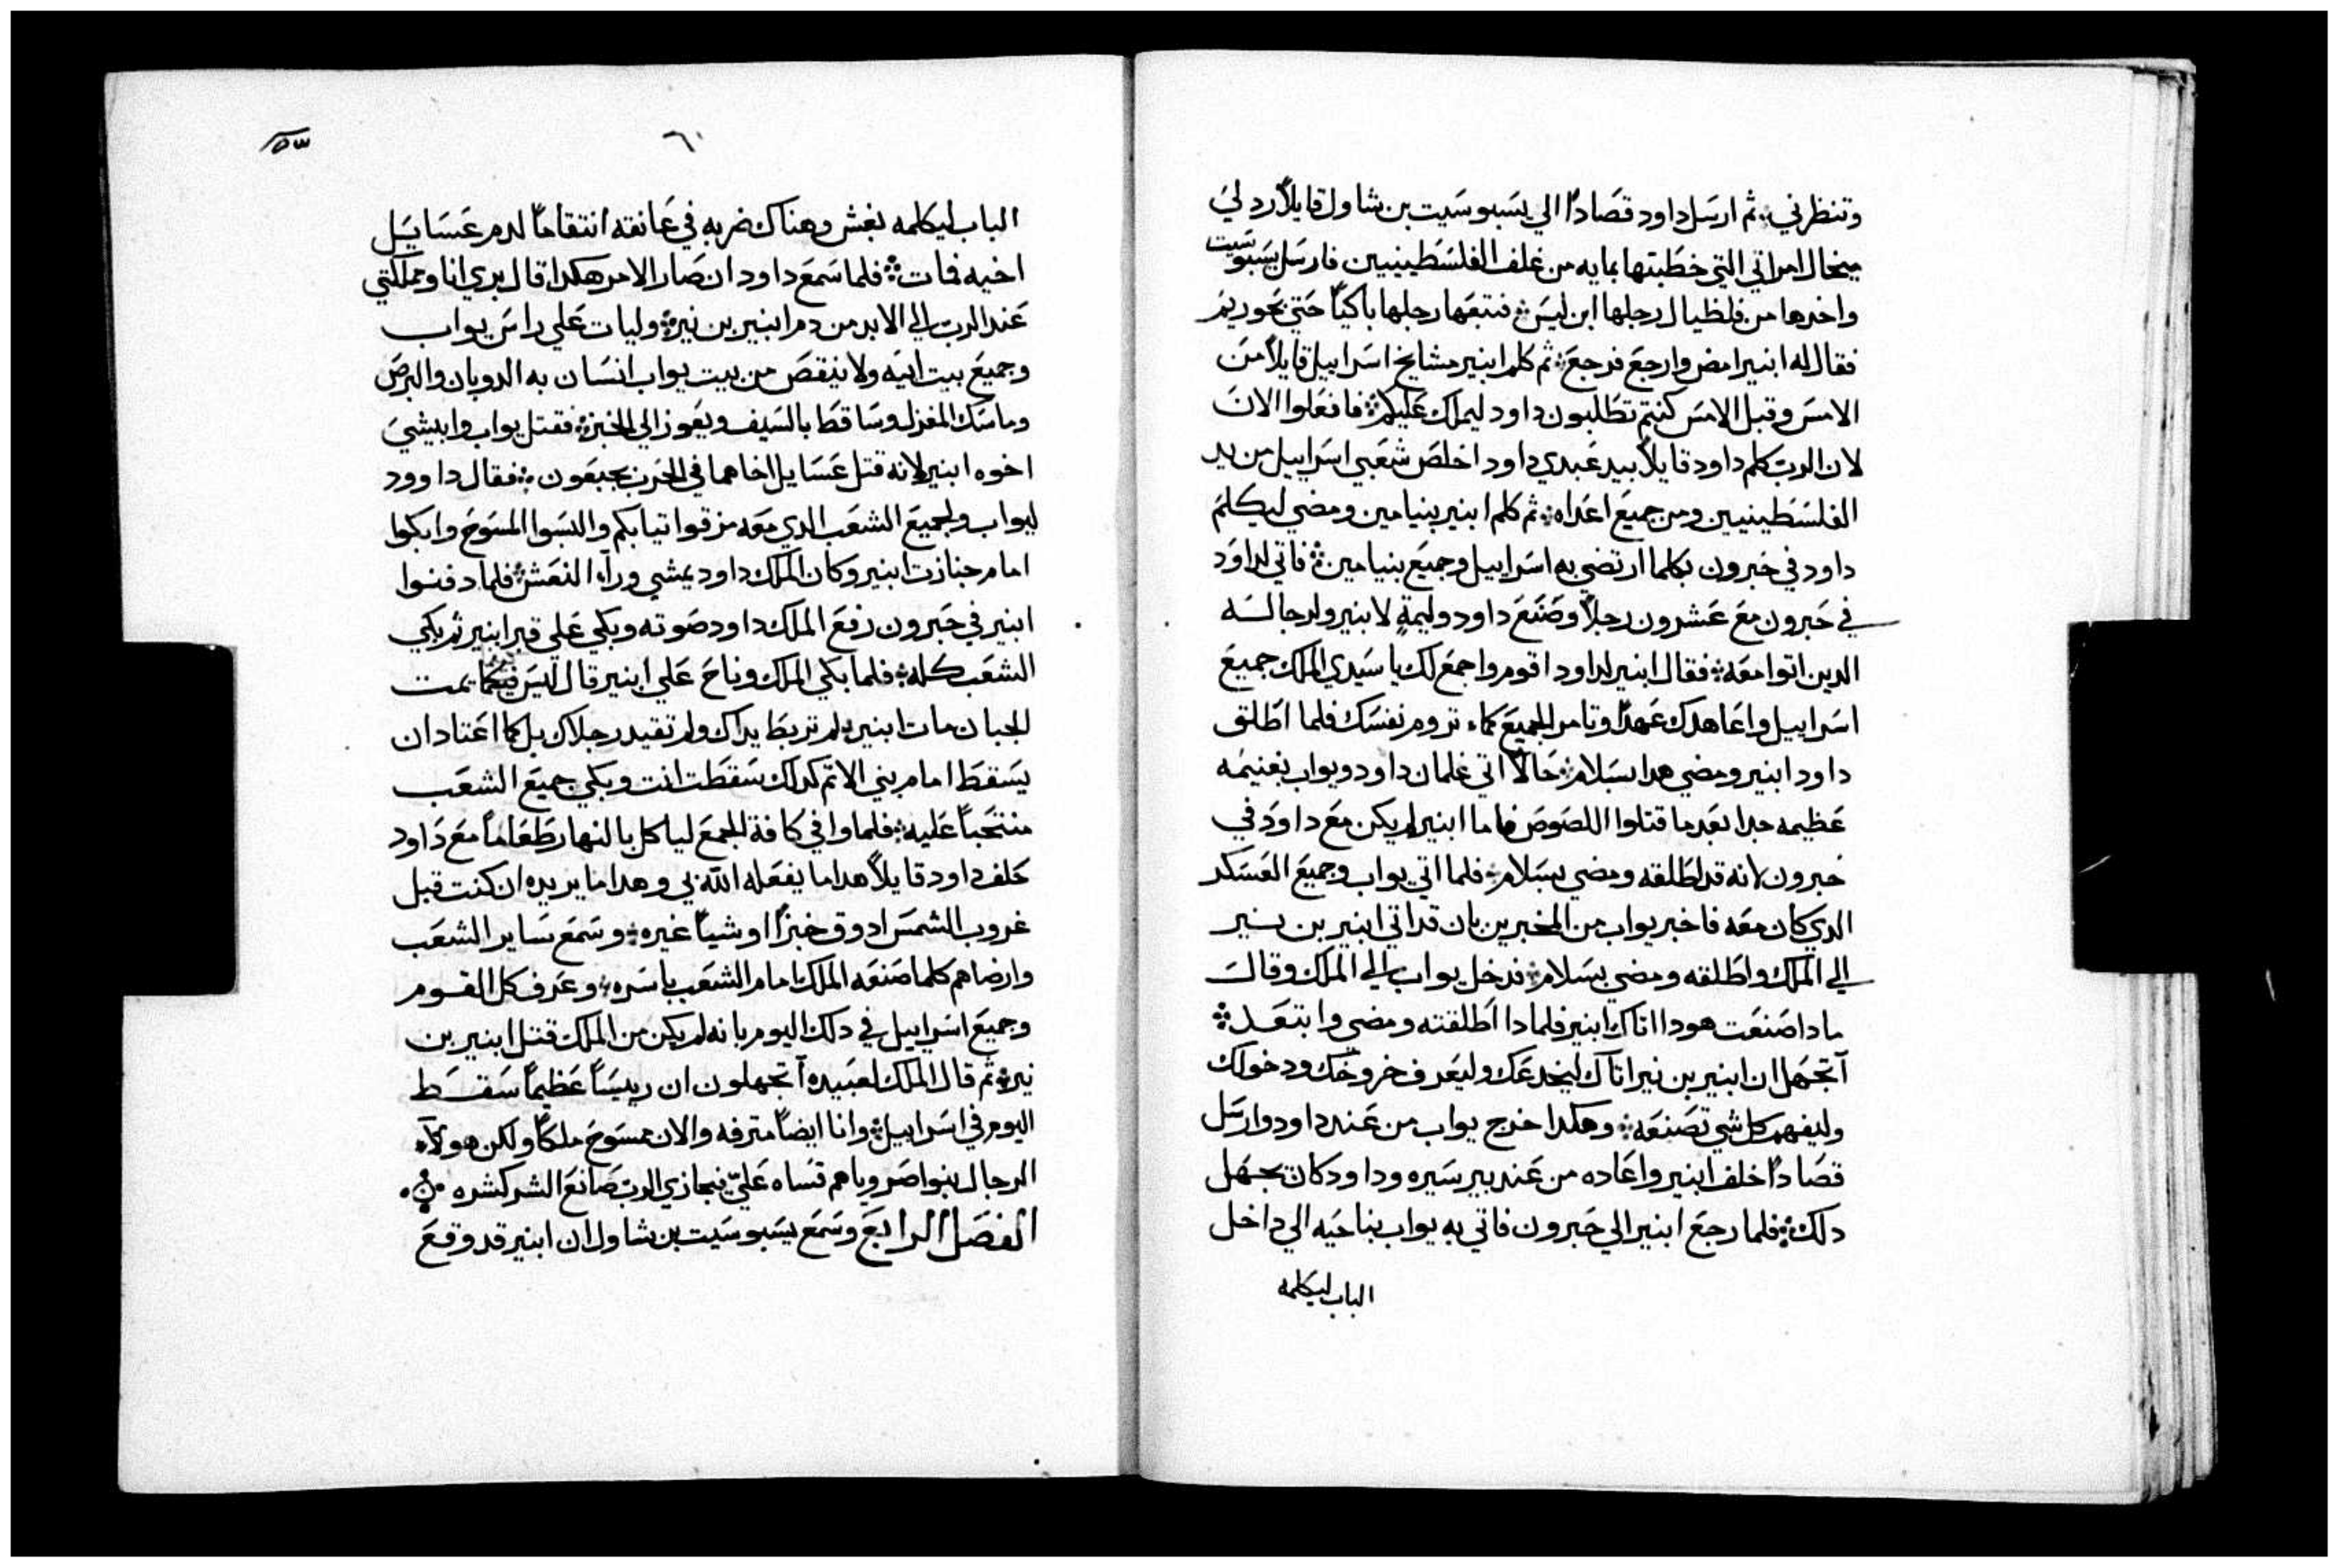 وتنظرني ۞ ثم ارسل داود قصادًا الي يسبوسيت بن شاول قايلاً رد لي
ميخال امراتي التي خطبتها بمايه من غلف الفلسطينيين فارسل يسبوسيت
واخدها من فلظيال رجلها ابن ليس ۞ فتبعها رجلها باكيًا حتي بحوريم
فقال له ابنير امض وارجع فرجع ۞ ثم كلم ابنير مشايخ اسراييل قايلاً من
الامس وقبل الامس كنتم تطلبون داود ليملك عليكم ۞ فافعلوا الان
لان الرب كلم داود قايلاً بيد عبدي داود اخلص شعبي اسراييل من يد
الفلسطينيين ومن جميع اعداه ۞ ثم كلم ابنير بنيامين ومضي ليكلم
داود في حبرون بكلما ارتضي به اسراييل وجميع بنيامين ۞ فاتي لداود
في حبرون مع عشرون رجلاً وصنع داود وليمةٍ لابنير ولرجاله
الدين اتوا معه ۞ فقال ابنير لداود اقوم واجمع لك يا سيدي الملك جميع
اسراييل واعاهدك عهدًا وتامر الجميع كماء تروم نفسك فلما اطلق
داود ابنير ومضي هدا بسلام ۞ حالاً اتي غلمان داود ويواب بغنيمه
عظيمه جدا بعد ما قتلوا اللصوص فاما ابنير لم يكن مع داود في
حبرون لانه قد اطلقه ومضي بسلام ۞ فلما اتي يواب وجميع العسكر
الدي كان معه فاخبر يواب من المخبرين بان قد اتي ابنير بن نير
الي الملك واطلقه ومضي بسلام ۞ فدخل يواب الي الملك وقال
مادا صنعت هودا اتاك ابنير فلمادا اطلقته ومضي وابتعد ۞
آتجهل ان ابنير بن نير اتاك ليخدعك وليعرف خروجك ودخولك
وليفهم كل شي تصنعه ۞ وهكدا خرج يواب من عند داود وارسل
قصادًا خلف ابنير واعاده من عند بير سيره وداود كان يجهل
دلك ۞ فلما رجع ابنير الي حبرون فاتي به يواب بناحيه الي داخل
الباب ليكلمه
٦٠
الباب ليكلمه بغش وهناك ضربه في عانقه انتقامًا لدم عسايل
اخيه فمات ۞ فلما سمع داود ان صار الامر هكدا قال بري انا ومملكتي
عند الرب الي الابد من دم ابنير بن نير ۞ وليات علي راس يواب
وجميع بيت ابيه ولا ينقص من بيت يواب انسان به الدوبان والبرص
وماسك المغزل وساقط بالسيف ويعوز الي الخبز ۞ فقتل يواب وابيشي
اخوه ابنير لانه قتل عسايل اخاهما في الحرب بجبعون ۞ فقال داوود
ليواب ولجميع الشعب الدي معه مزقوا تيابكم والبسوا المسوح وابكوا
امام جنازت ابنير وكان الملك داود يمشي ورآء النعش ۞ فلما دفنوا
ابنير في حبرون رفع الملك داود صوته وبكي علي قبر ابنير ثم بكي
الشعب كله ۞ فلما بكي الملك وناح علي ابنير قال ليس كما يمت
الجبان مات ابنير لم تربط يداك ولم تقيد رجلاك بل كما اعتاد ان
يسقط امام بني الاتم كداك سقطت انت وبكي جميع الشعب
منتحبًا عليه ۞ فلما وافي كافة الجمع لياكل بالنهار طعامًا مع داود
حلف داود قايلاً هدا ما يفعله الله بي وهدا ما يريده ان كنت قبل
غروب الشمس ادوق خبزًا او شيًا غيره ۞ وسمع ساير الشعب
وارضاهم كلما صنعه الملك امام الشعب باسره ۞ وعرف كل القوم
وجميع اسراييل في دلك اليوم بانه لم يكن من الملك قتل ابنير بن
نير ۞ ثم قال الملك لعبيده آتجهلون ان رييسًا عظيمًا سقط
اليوم في اسراييل ۞ وانا ايضًا مترفه والان ممسوح ملكًا ولكن هولآء
الرجال بنوا صرويا هم قساه عليّ فيجازي الرب صانع الشر كشره ۞
الفصل الرابع وسمع يسبوسيت بن شاول ان ابنير قد وقع